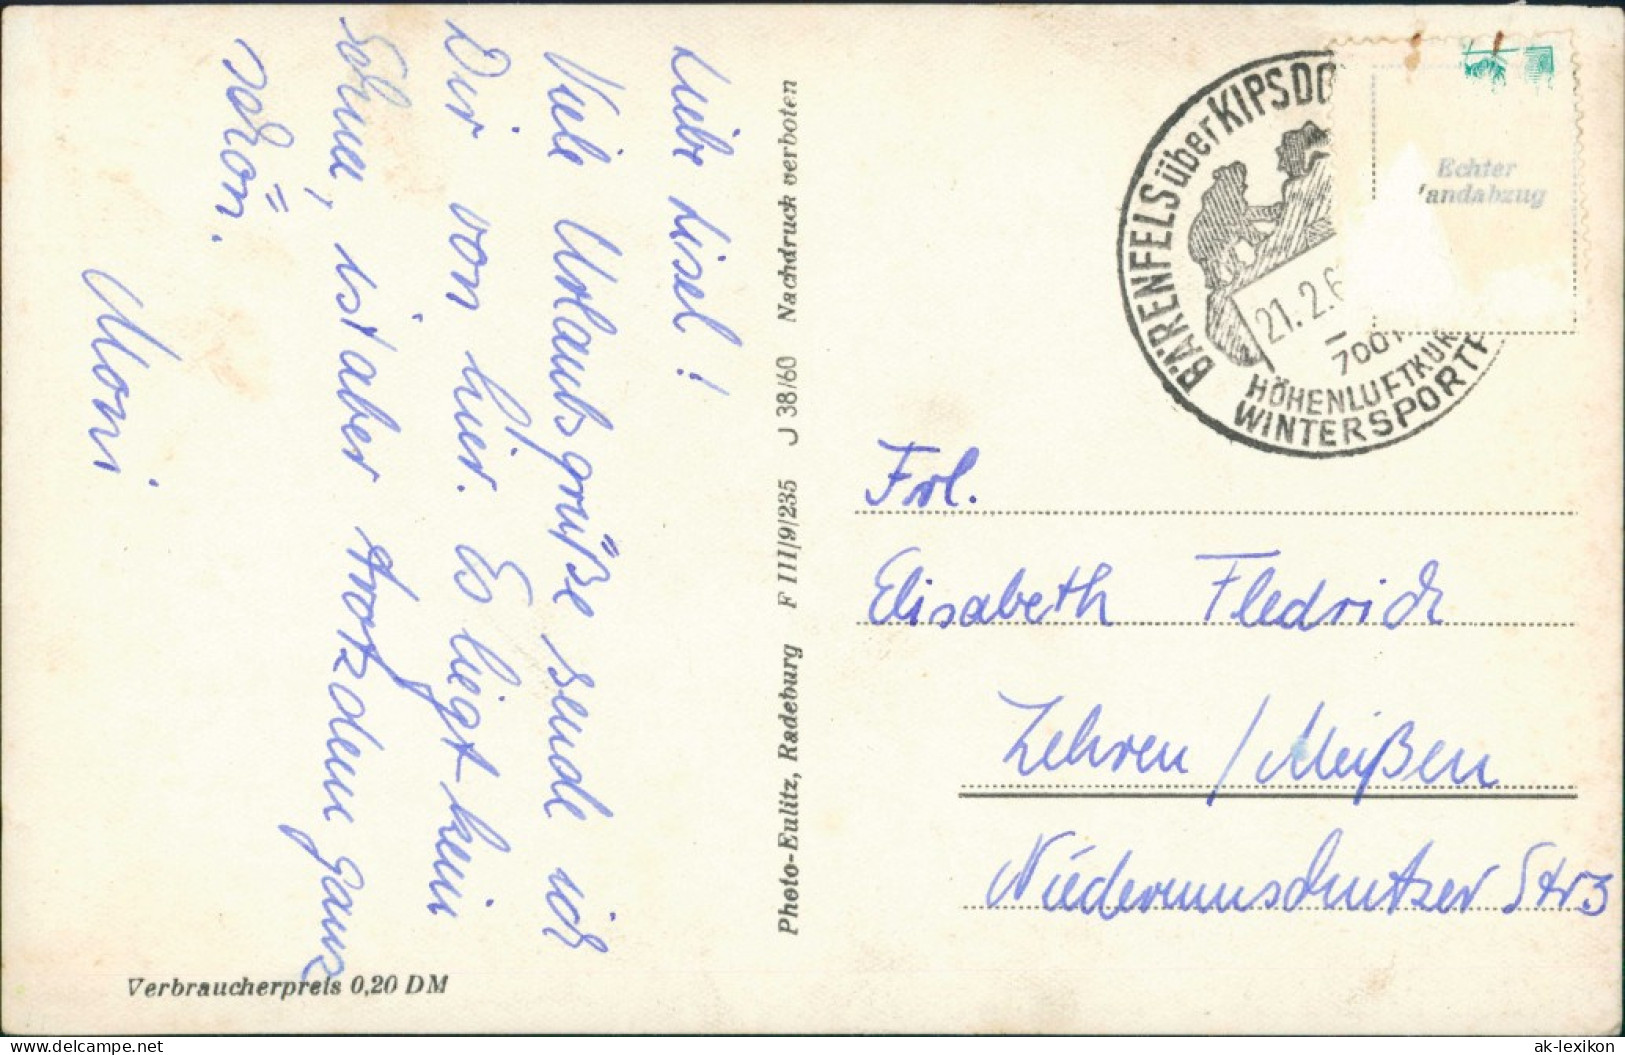 Liebe Lisel!
Viele Urlaubsgrüße sende ich
Dir von hier. Es liegt kein
Schnee, ist aber trotzdem ganz
schön.
Moni
Verbraucherpreis 0,20 DM
Photo-Eulitz, Radeburg F III/9/235 J 38/60 Nachdruck verboten
BÄRENFELS über KIPSDO
21. 2. 6
HÖHENLUFTKUR
WINTERSPORT
Echter
andabzug
Frl.
Elisabeth Fledrich
Zehren / Meißen
Niedermuschützer Str 3
www.delcampe.net
ak-lexikon